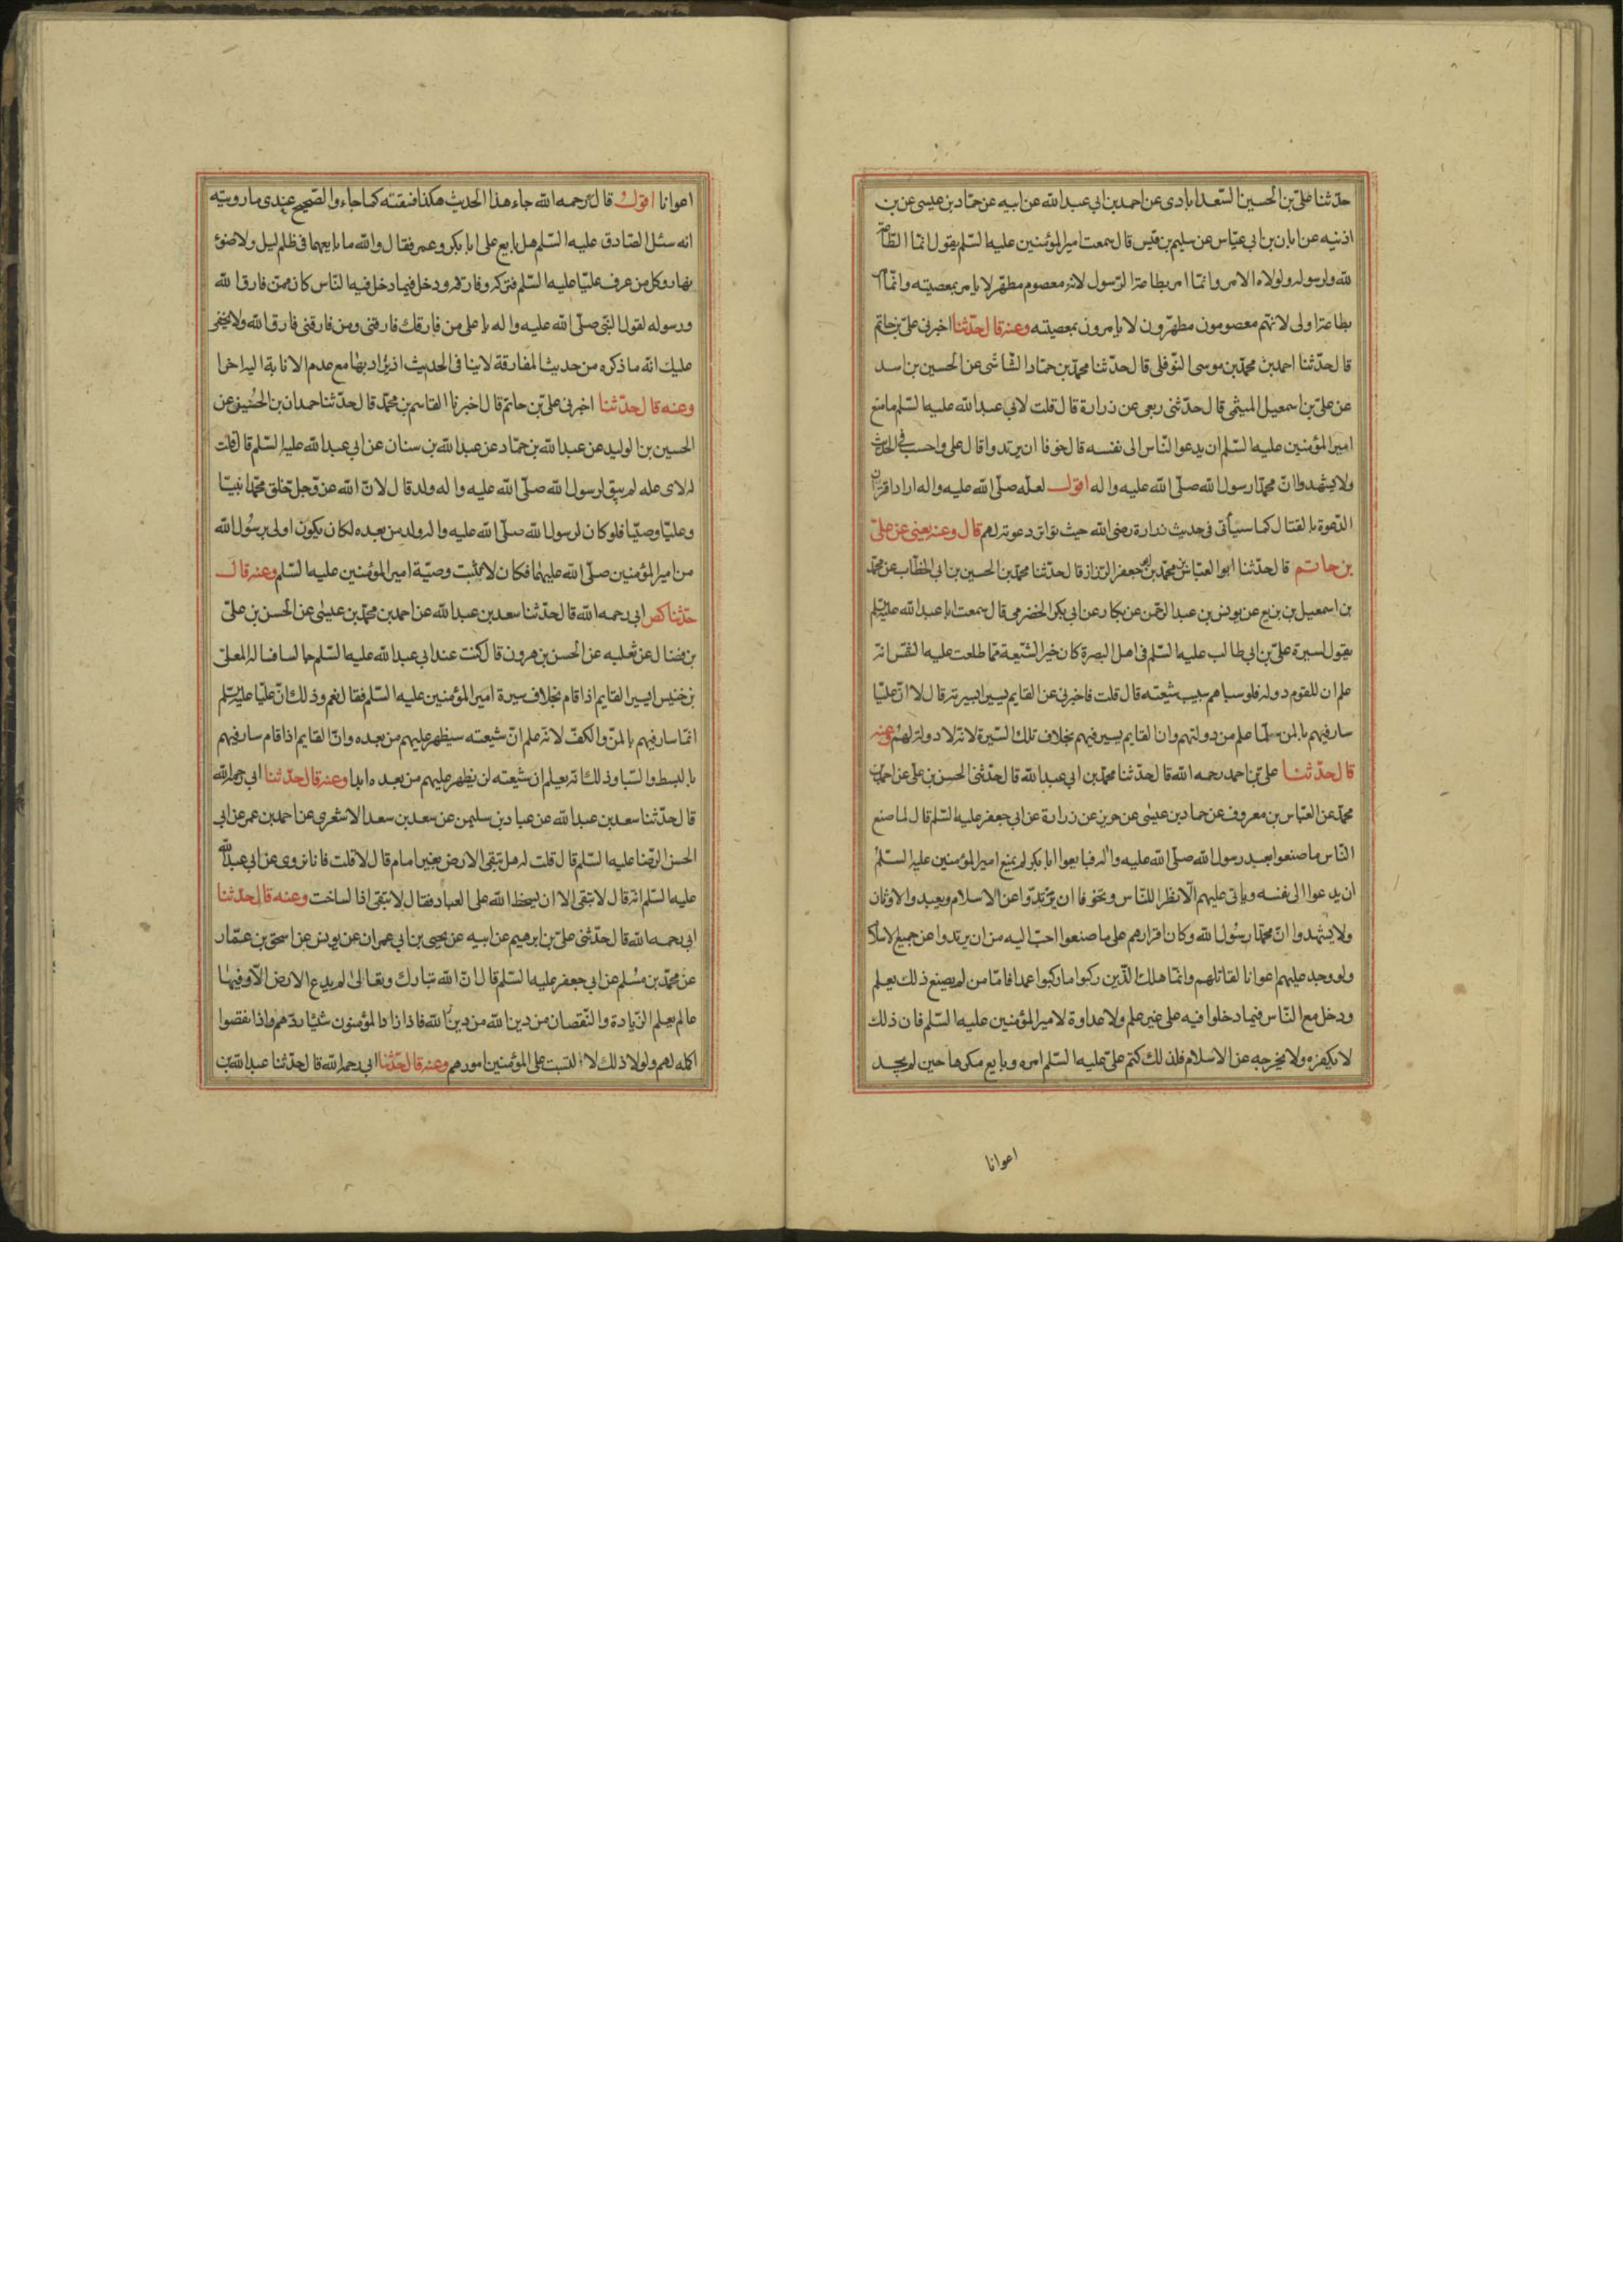 حدّثنا علىّ بن الحسين السّعدابادى عن احمد بن ابى عبد الله عن ابيه عن حمّاد بن عيسى عن بن
اذنيه عن ابان بن ابى عيّاس عن سليم بن قيس قال سمعت امير المؤمنين عليه السّلم يقول انما الطّاعة
لله ولرسوله ولولاه الامر وانمّا امر بطاعة الرّسول لانه معصوم مطهّر لا يامر بمعصيته وانمّا امر
بطاعة اولى لانهّم معصومون مطهّرون لا يامرون بمعصيته وعنه قال حدّثنا اخبرنى علىّ بن حاتم
قال حدّثنا احمد بن محمّد بن موسى النّوفلى قال حدّثنا محمّد بن حمّاد الشّاشى عن الحسين بن اسد
عن علىّ بن اسمعيل الميثمى قال حدّثنى ربعى عن زرارة قال قلت لابى عبد الله عليه السّلم ما منع
امير المؤمنين عليه السّلم ان يدعوا النّاس الى نفسه قال خوفا ان يرتدوا قال على واحسب فى الحديث
ولا يشهدوا انّ محمّدا رسول الله صلّى الله عليه واله اقول لعلّه صلّى الله عليه واله اراد اقتران
الدّعوة بالقتال كما سيأتى فى حديث زرارة رضى الله حيث تواتر دعوته لهم قال وعنه يعنى عن علىّ
بن حاتم قال حدّثنا ابوا العبّاس محمّد بن جعفر الرّزاز قال حدّثنا محمّد بن الحسين بن ابى الخطّاب عن محمّد
بن اسمعيل بن بزيع عن يونس بن عبد الرّحمن عن بكار عن ابى بكر الحضرمى قال سمعت ابا عبد الله عليه السّلم
يقول لسيرة علىّ بن ابى طالب عليه السّلم فى اهل البصرة كان خير الشّيعة ممّا طلعت عليه الشّمس انه
علم ان للقوم دوله فلو سباهم سبيت شيعته قال قلت فاخبرنى عن القايم يسير بسيرته قال لا انّ عليّا
سار فيهم بالمن لما علم من دولتهم وان القايم يسير فيهم بخلاف تلك السّيرة لانه لا دولة لهم وعنه
قال حدّثنا علىّ بن احمد رحمه الله قال حدّثنا محمّد بن ابى عبد الله قال حدّثنى الحسن بن على عن احمد بن
محمّد عن العبّاس بن معروف عن حماد بن عيسى عن حريز عن زرارة عن ابى جعفر عليه السّلم قال لما صنع
النّاس ما صنعوا بعد رسول الله صلّى الله عليه واله فبايعوا ابا بكر لم يمنع امير المؤمنين عليه السّلم
ان يدعوا الى نفسه وياتى عليهم الّا نظرا للنّاس وتخوفا ان يرتدّوا عن الاسلام ويعبدوا الاوثان
ولا يشهدوا انّ محمّدا رسُول الله وكان اقرارهم على ما صنعوا احبّ اليه من ان يرتدوا عن جميع الاسلام
ولو وجد عليهم اعوانا لقاتلهم وانمّا هلك الّذين ركبوا ما ركبوا عمدا فامّا من لم يصنع ذلك يعلم
ودخل مع النّاس فيما دخلوا فيه على غير علم ولا عداوة لامير المؤمنين عليه السّلم فان ذلك
لا يكفره ولا يخرجه عن الاسلام فلذلك كتم علىّ عليه السّلم امره وبايع مكرها حين لم يجد
اعوانا
اعوانا اقول قال رحمه الله جاء هذا الحديث هكذا فنقتته كما جاء والصّحيح عندى ما رويته
انه سئل الصّادق عليه السّلم هل بايع على ابا بكر وعمر فقال والله ما بايعهما فى ظلم ليل ولا ضوئ
نهار وكل من عرف عليّا عليه السّلم فتركه وفارقه ودخل فيما دخل فيه النّاس كان ممّن فارق الله
ورسوله لقول النّبى صلّى الله عليه واله يا على من فارقك فارقنى ومن فارقنى فارق الله ولا يخفى
عليك انّه ما ذكره من حديث المفارقة لا ينافى الحديث اذ يراد بها مع عدم الانابة اليه اخرا
وعنه قال حدّثنا اخبرنى علىّ بن حاتم قال اخبرنا القاسم بن محمّد قال حدّثنا حمدان بن الحُسين عن
الحسين بن الوليد عن عبد الله بن حمّاد عن عبد الله بن سنان عن ابى عبد الله عليه السّلم قال قلت
له لاى عله لم يبق لرسول الله صلّى الله عليه واله ولد قال لانّ الله عزّ وجل خلق محمّدا نبيّا
وعليّا وصيّا فلو كان لرسول الله صلّى الله عليه واله ولد من بعده لكان يكون اولى برسُول الله
من امير المؤمنين صلّى الله عليهما فكان لا تثبت وصيّة امير المؤمنين عليه السّلم وعنه قال
حدّثنا ابى رحمه الله قال حدّثنا سعد بن عبد الله عن احمد بن محمّد بن عيسى عن الحسن بن علىّ
بن فضال عن ثعلبه عن الحسن بن هرون قال كنت عند ابى عبد الله عليه السّلم جالسا فساله المعلى
بن خنيس ايسير القايم اذا قام بخلاف سيرة امير المؤمنين عليه السّلم فقال نعم وذلك انّ عليّا عليه السّلم
انمّا سار فيهم بالمنّ والكفّ لانه علم انّ شيعته سيظهر عليهم من بعده وانّ القايم اذا قام سار فيهم
بالبسط والسّبا وذلك انه يعلم ان شيعته لن يظهر عليهم من بعده ابدا وعنه قال حدّثنا ابى رحمه الله
قال حدّثنا سعد بن عبد الله عن عباد بن سليمن عن سعد بن سعد الاشعرى عن احمد بن عمر عن ابى
الحسن الرّضا عليه السّلم قال قلت له هل تبقى الارض بغير امام قال لا قلت فانا نروى عن ابى عبد الله
عليه السّلم انّه قال لا تبقى الا ان يسخط الله على العباد فقال لا تبقى اذا لساخت وعنه قال حدّثنا
ابى رحمه الله قال حدّثنى علىّ بن ابرهيم عن ابيه عن يحيى بن ابى عمران عن يونس عن اسحق بن عمّار
عن محمّد بن مسُلم عن ابى جعفر عليه السّلم قال انّ الله تبارك وتعالى لم يدع الارض الّا وفيها
عالم يعلم الزّيادة والنّقصان من دين الله فاذا زاد المؤمنون شيئا ردّهم واذا نقصوا
اكمله لهم ولولا ذلك لالتبست على المؤمنين امورهم وعنه قال حدّثنا ابى رحمه الله قال حدّثنا عبد الله بن